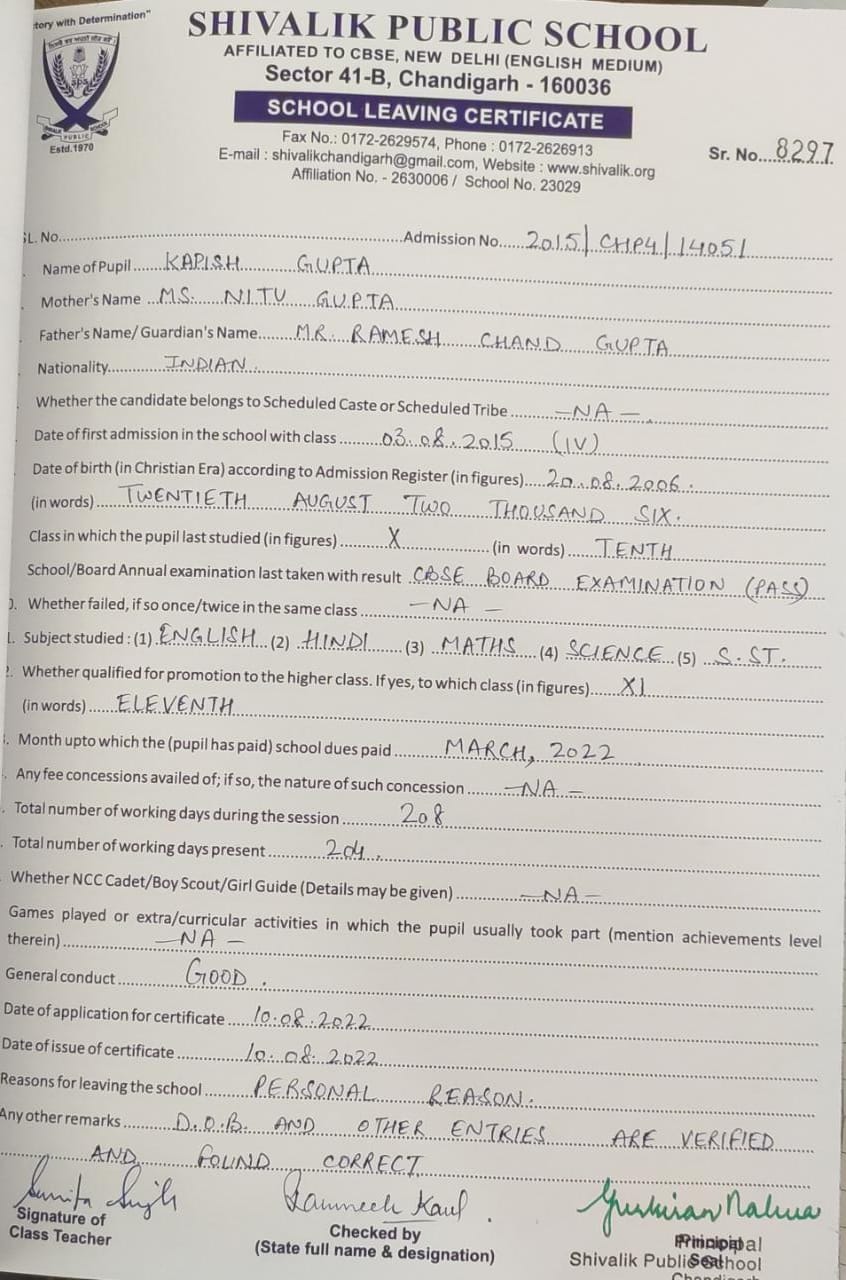 tory with Determination"
SHIVALIK PUBLIC SCHOOL
AFFILIATED TO CBSE, NEW DELHI (ENGLISH MEDIUM)
Sector 41-B, Chandigarh - 160036
SCHOOL LEAVING CERTIFICATE
Estd.1970
Fax No.: 0172-2629574, Phone : 0172-2626913
E-mail : shivalikchandigarh@gmail.com, Website : www.shivalik.org
Affiliation No. - 2630006 / School No. 23029
Sr. No....8297
SL. No.......Admission No.....2015/CHP4/14051
Name of Pupil.....KAPISH GUPTA
Mother's Name ...MS. NITU GUPTA
Father's Name/ Guardian's Name.....MR. RAMESH CHAND GUPTA
Nationality.....INDIAN.
Whether the candidate belongs to Scheduled Caste or Scheduled Tribe.....—NA—.
Date of first admission in the school with class.....03.08.2015 (IV)
Date of birth (in Christian Era) according to Admission Register (in figures)....20.08.2006.
(in words)....TWENTIETH AUGUST TWO THOUSAND SIX.
Class in which the pupil last studied (in figures).....X.....(in words).....TENTH
School/Board Annual examination last taken with result ..CBSE BOARD EXAMINATION (PASS)
). Whether failed, if so once/twice in the same class.....—NA—
. Subject studied : (1) ENGLISH (2) HINDI (3) MATHS (4) SCIENCE (5) S.ST.
. Whether qualified for promotion to the higher class. If yes, to which class (in figures).....XI
(in words).....ELEVENTH
. Month upto which the (pupil has paid) school dues paid.....MARCH, 2022
. Any fee concessions availed of; if so, the nature of such concession.....—NA—
. Total number of working days during the session.....208
. Total number of working days present.....204.
Whether NCC Cadet/Boy Scout/Girl Guide (Details may be given).....—NA—
Games played or extra/curricular activities in which the pupil usually took part (mention achievements level
therein).....—NA—
General conduct.....GOOD.
Date of application for certificate....10.08.2022
Date of issue of certificate.....10.08.2022
Reasons for leaving the school.....PERSONAL REASON.
Any other remarks.....D.O.B. AND OTHER ENTRIES ARE VERIFIED
AND FOUND CORRECT
Sunita Singh
Signature of
Class Teacher
Kaul
Checked by
(State full name & designation)
Principal
Seal
Shivalik Public School
Chandigarh